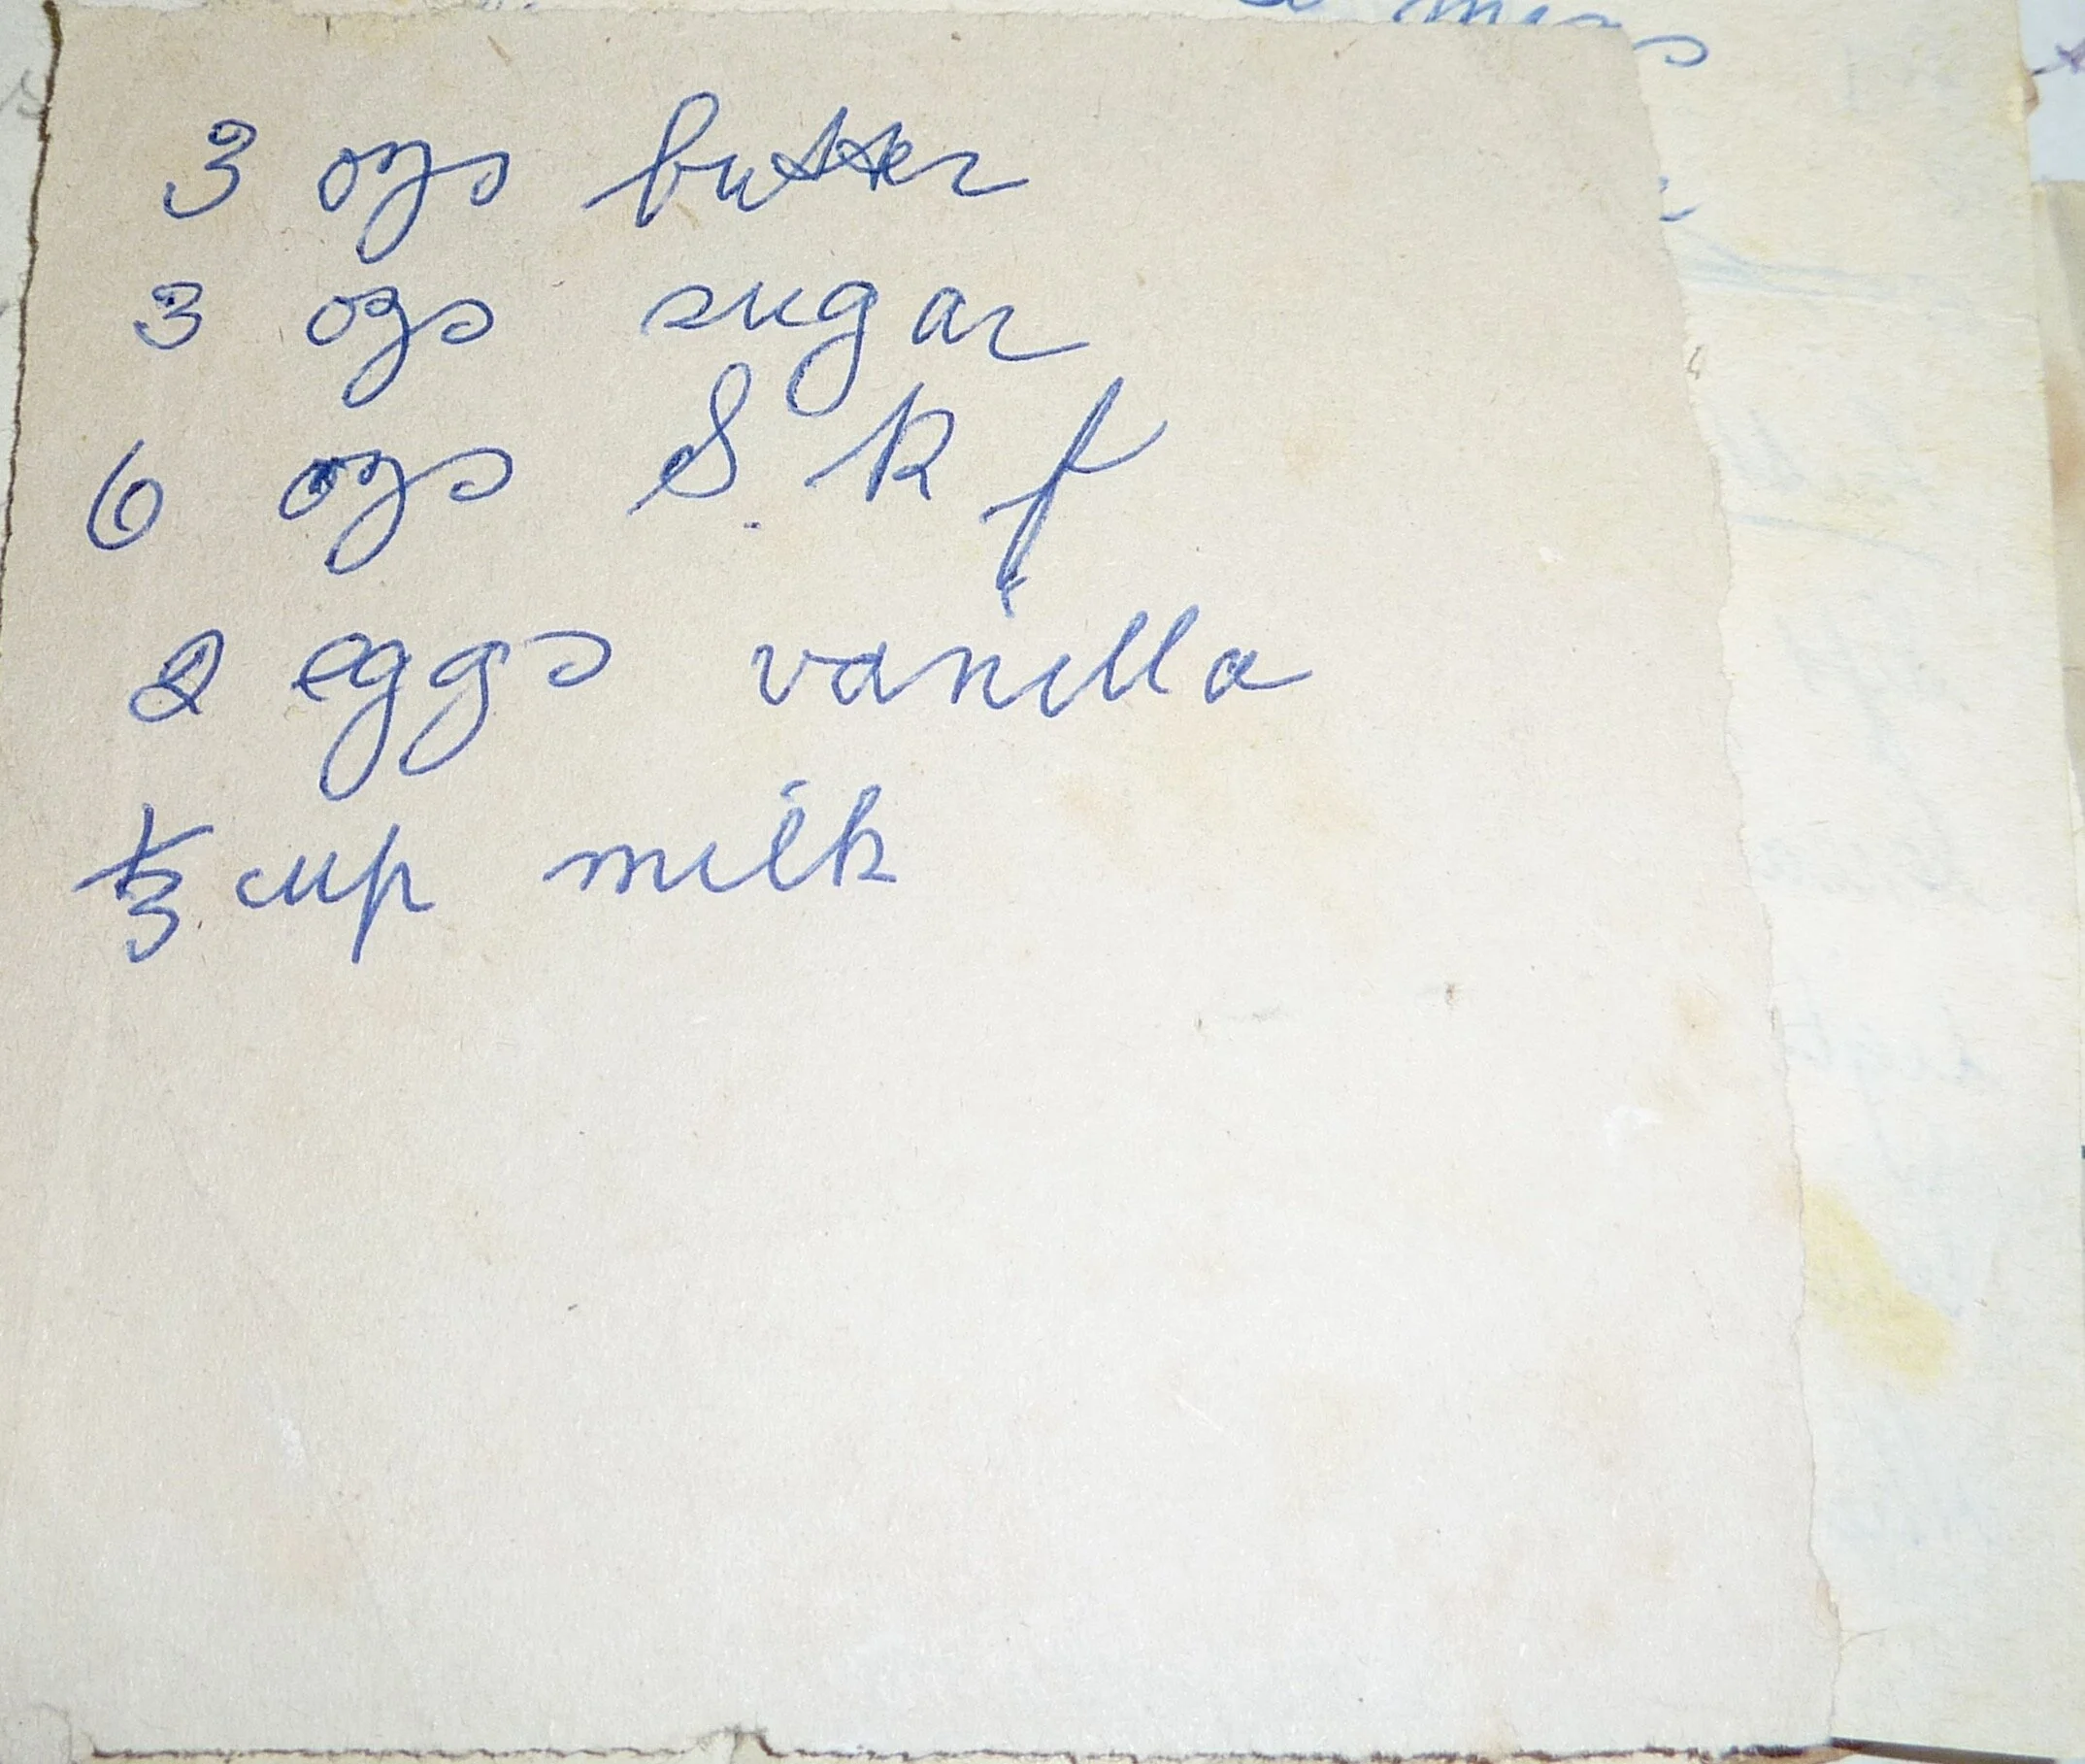 3 ozs butter
3 ozs sugar
6 ozs S. R f
2 eggs vanilla
1/3 cup milk